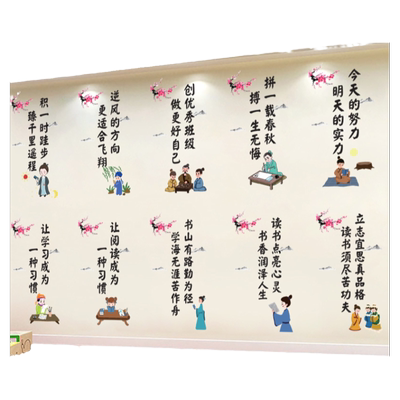 积一时跬步
臻千里遥程
逆风的方向
更适合飞翔
创优秀班级
做更好自己
拼一载春秋
搏一生无悔
今天的努力
明天的实力
让学习成为
一种习惯
让阅读成为
一种习惯
书山有路勤为径
学海无涯苦作舟
读书点亮心灵
书香润泽人生
立志宜思真品格
读书须尽苦功夫